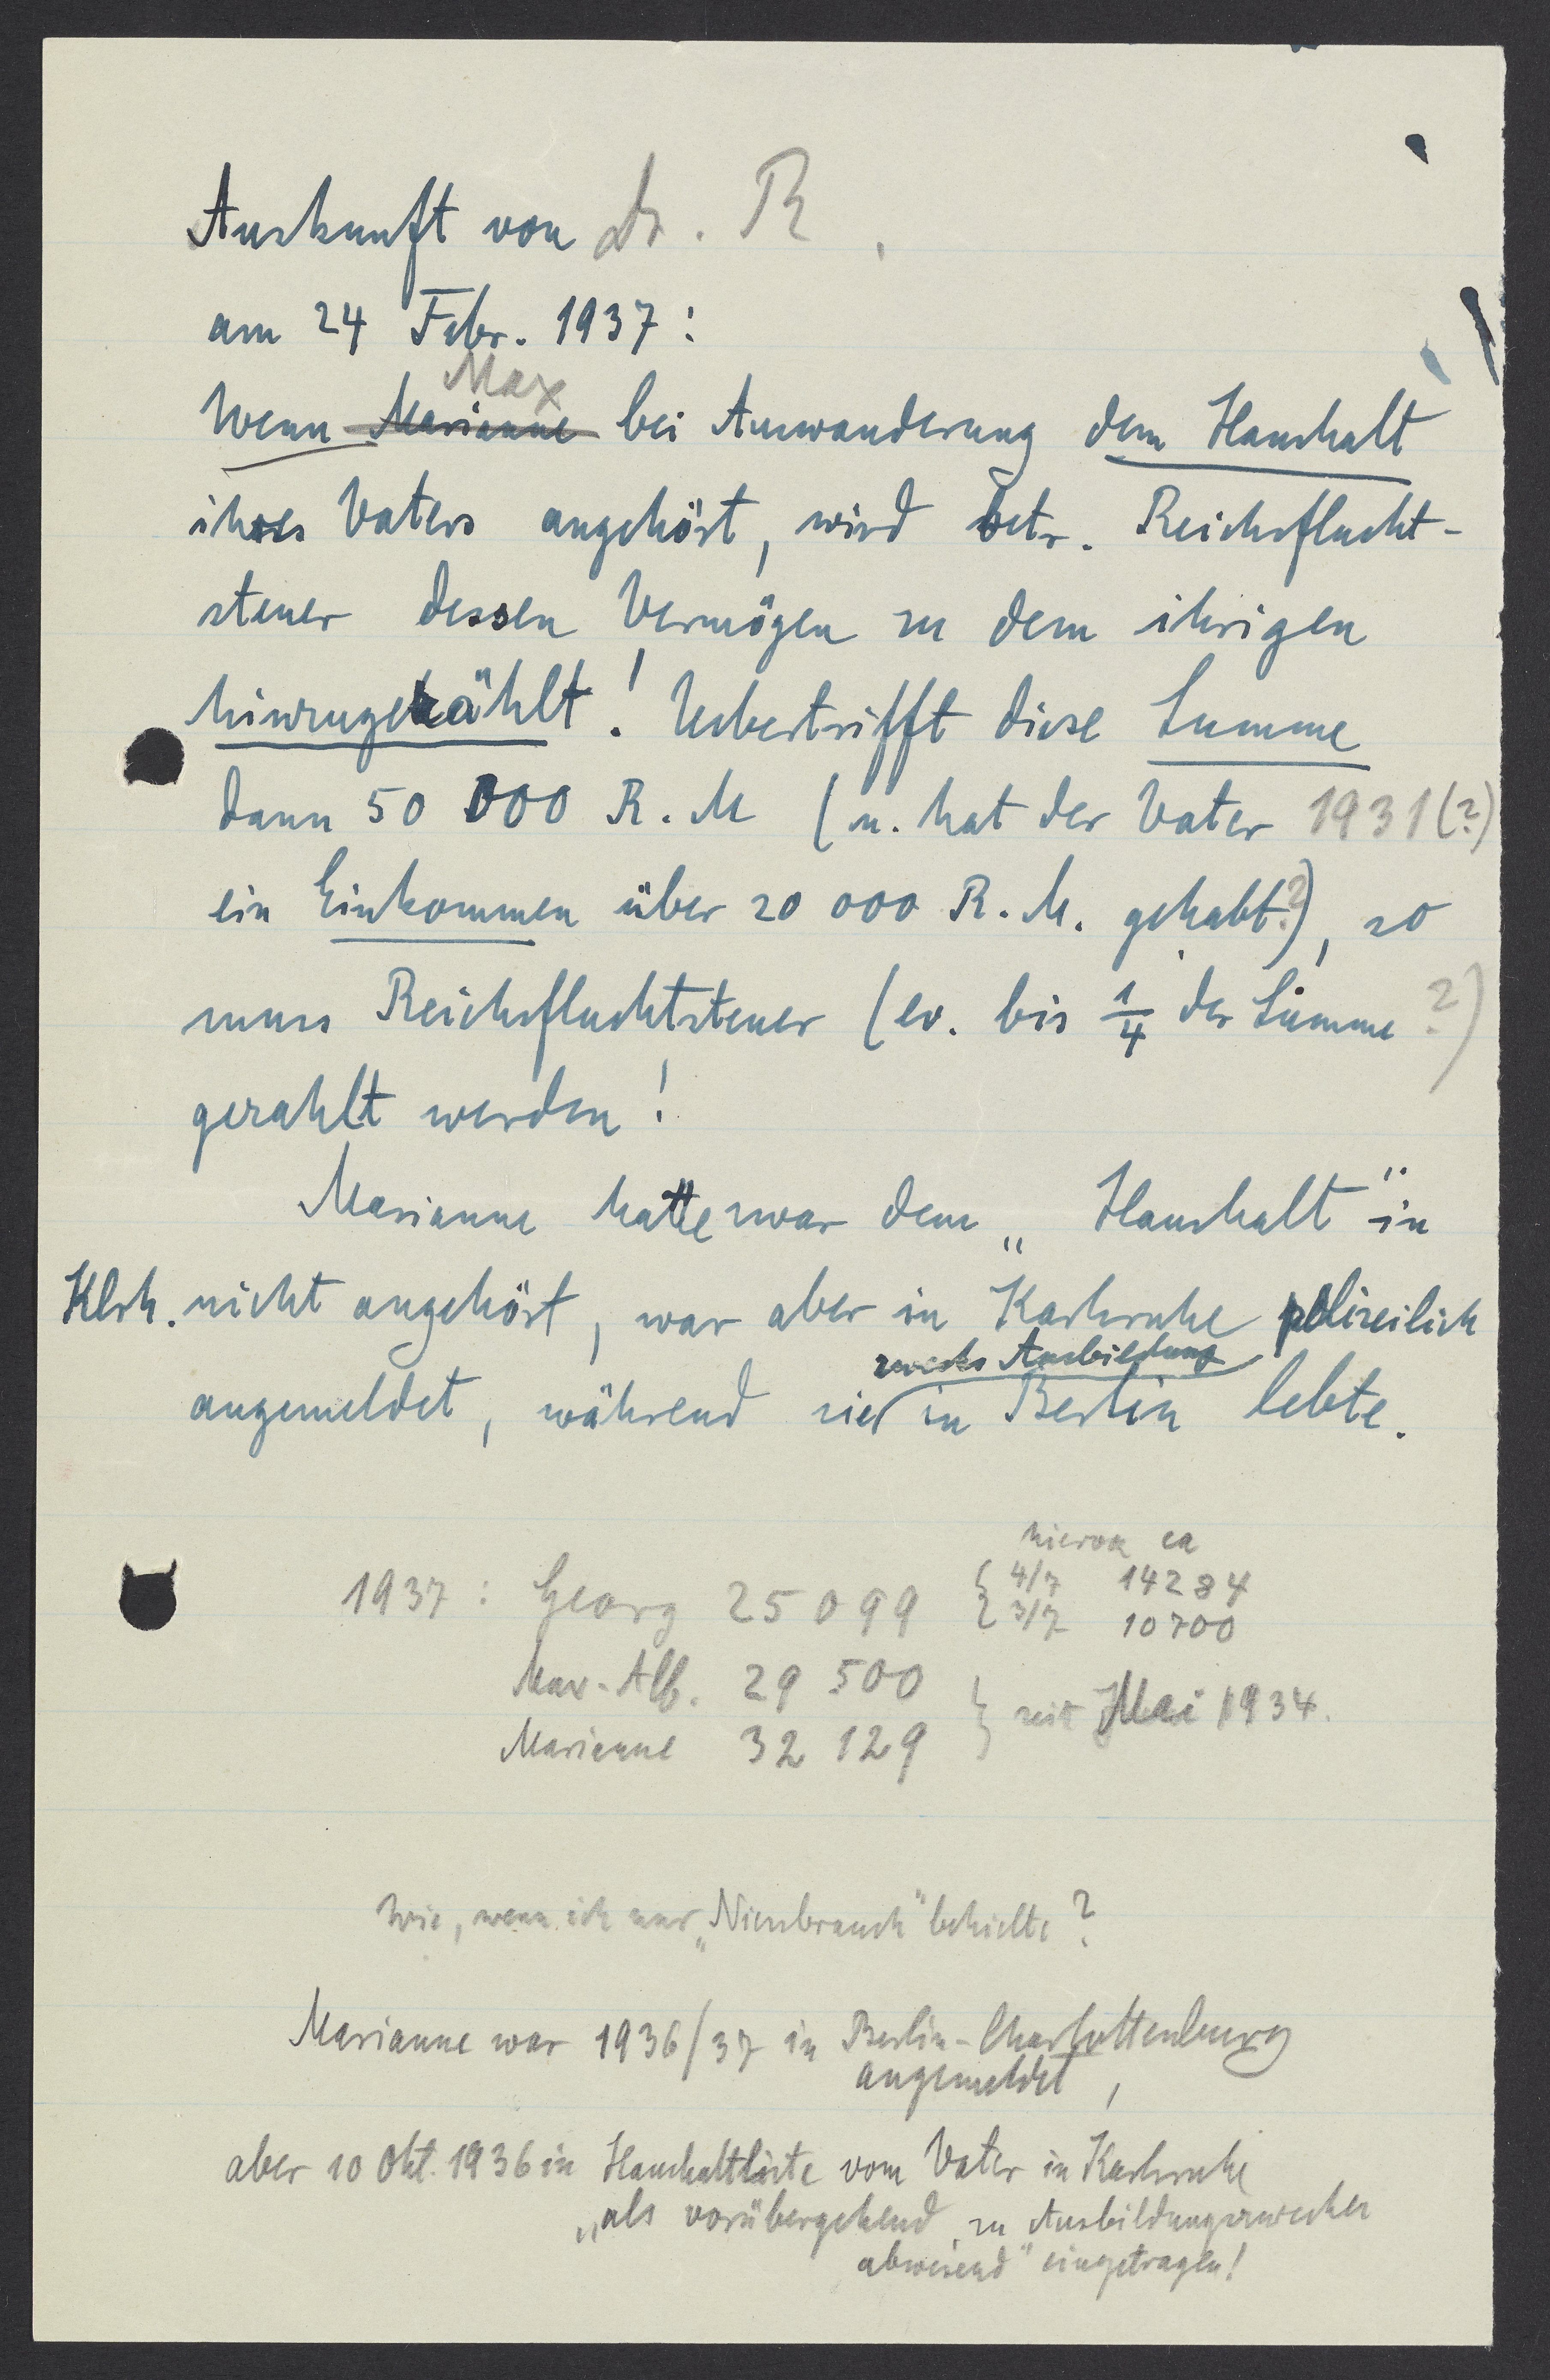 Auskunft von Dr. R.
am 24 Febr. 1937:
Max
Wenn Marianne bei Auswanderung dem Haushalt
ihres Vaters angehört, wird betr. Reichsflucht-
steuer dessen Vermögen zu dem ihrigen
hinzugezählt! Uebertrifft diese Summe
dann 50 000 R. M (u. hat der Vater 1931(?)
ein Einkommen über 20 000 R. M. gehabt?), so
muss Reichsfluchtsteuer (ev. bis 1/4 der Summe?)
gezahlt werden!
Marianne hatte zwar dem „Haushalt" in
Klrh. nicht angehört, war aber in Karlsruhe polizeilich
zwecks Ausbildung
angemeldet, während sie in Berlin lebte.
hievon ca
1937: Georg 25 099 { 4/7 14284
3/7 10700
Max-Alb. 29 500
Marianne 32 129 } seit Mai 1934.
Wie, wenn ich nur „Niessbrauch" behielte?
Marianne war 1936/37 in Berlin-Charlottenburg
angemeldet,
aber 10 Okt. 1936 in Haushaltliste vom Vater in Karlsruhe
„als vorübergehend zu Ausbildungszwecken
abwesend" eingetragen!